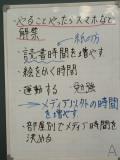 ・やることやったらスマホなど
解禁
紙の方
・読書時間を増やす
・絵をかく時間
・運動する
勉強
メディア以外の時間を
増やす
・部屋別でメディア時間を
決める
A